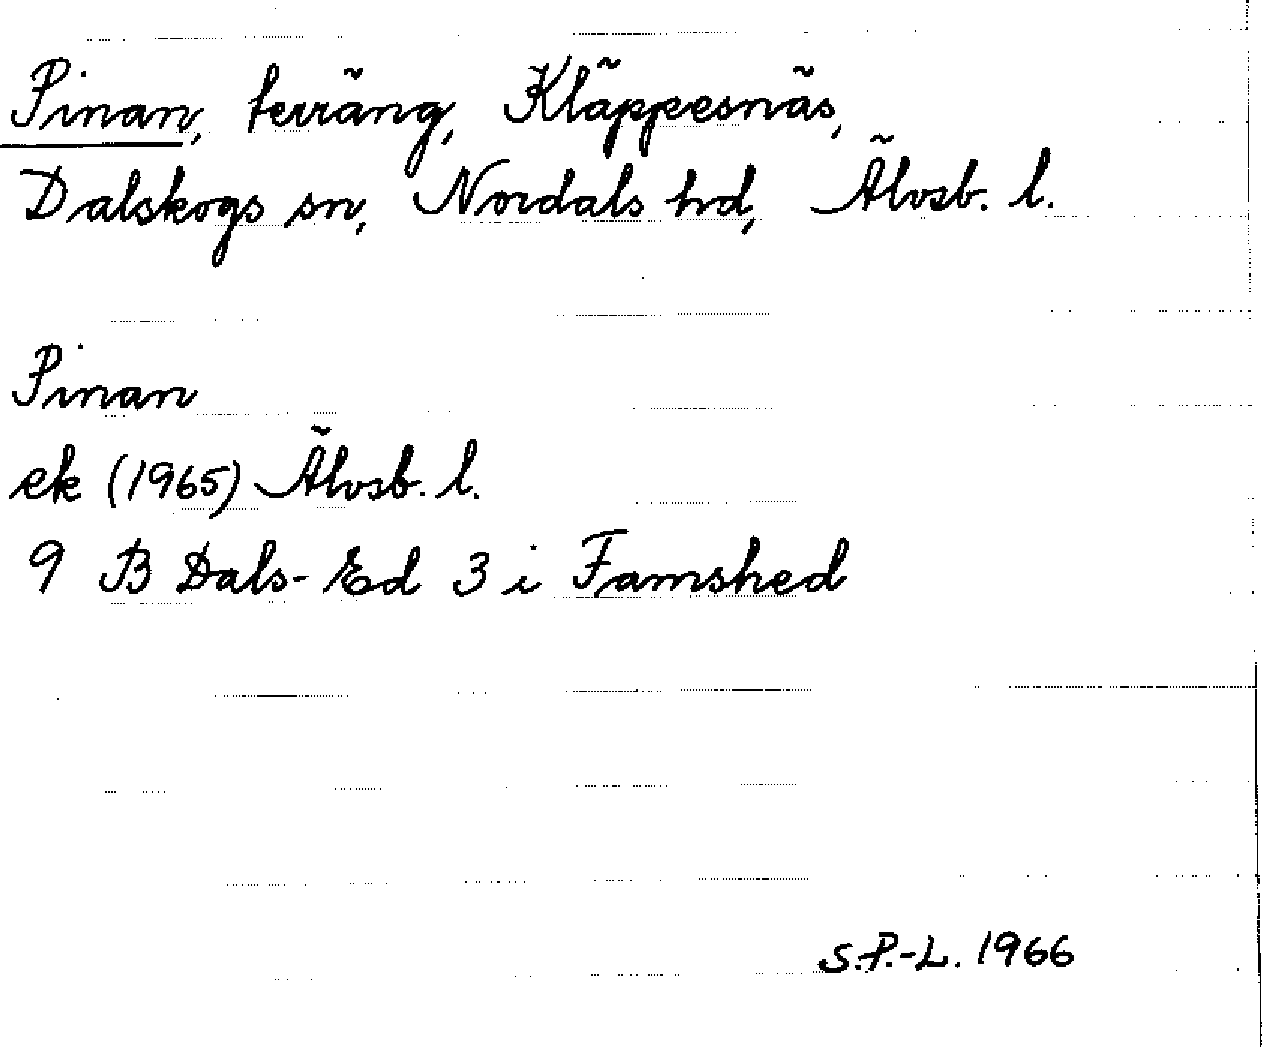 Pinan, terräng, Kläppesnäs,
Dalskogs sn, Nordals hd, Älvsb. l.
Pinan
ek (1965) Älvsb. l.
9 B Dals-Ed 3 i Famshed
S.P.-L. 1966